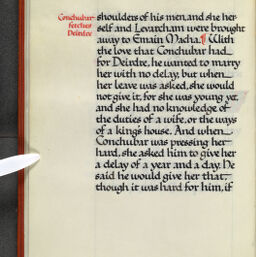 Conchubar
fetches
Deirdre
shoulders of his men, and she her-
self and Levarcham were brought
away to Emain Macha.¶ With
the love that Conchubar had
for Deirdre, he wanted to marry
her with no delay, but when
her leave was asked, she would
not give it, for she was young yet,
and she had no knowledge of
the duties of a wife, or the ways
of a king's house. And when
Conchubar was pressing her
hard, she asked him to give her
a delay of a year and a day. He
said he would give her that,
though it was hard for him, if